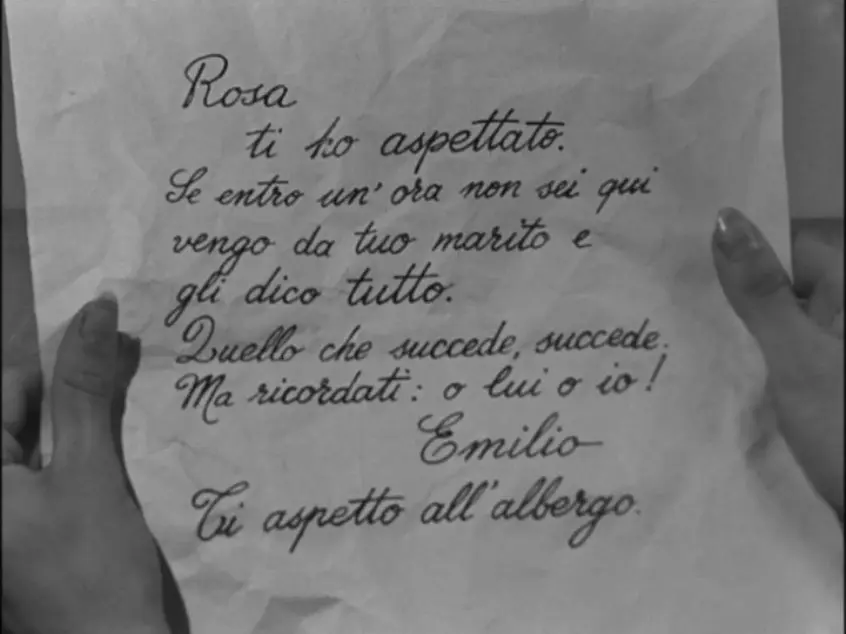 Rosa
ti ho aspettato.
Se entro un' ora non sei qui
vengo da tuo marito e
gli dico tutto.
Quello che succede, succede.
Ma ricordati: o lui o io!
Emilio
Ti aspetto all'albergo.